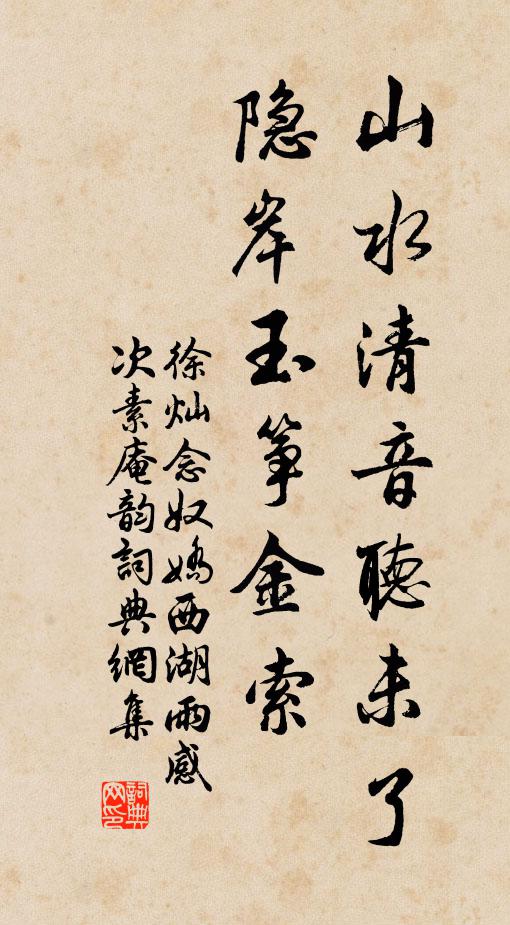 山水清音聽未了
隐岸玉筝金索
徐灿念奴嬌西湖雨感
次素庵韵詞典網集
詞典网印